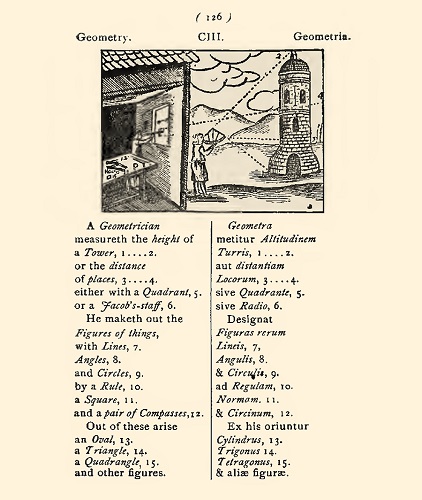 ( 126 )
Geometry. CIII. Geometria.
A Geometrician
measureth the height of
a Tower, 1....2.
or the distance
of places, 3....4.
either with a Quadrant, 5.
or a Jacob's-staff, 6.
He maketh out the
Figures of things,
with Lines, 7.
Angles, 8.
and Circles, 9.
by a Rule, 10.
a Square, 11.
and a pair of Compasses, 12.
Out of these arise
an Oval, 13.
a Triangle, 14.
a Quadrangle, 15.
and other figures.
Geometra
metitur Altitudinem
Turris, 1....2.
aut distantiam
Locorum, 3....4.
sive Quadrante, 5.
sive Radio, 6.
Designat
Figuras rerum
Lineis, 7,
Angulis, 8.
& Circulis, 9.
ad Regulam, 10.
Normam. 11.
& Circinum, 12.
Ex his oriuntur
Cylindrus, 13.
Trigonus 14.
Tetragonus, 15.
& aliæ figuræ.